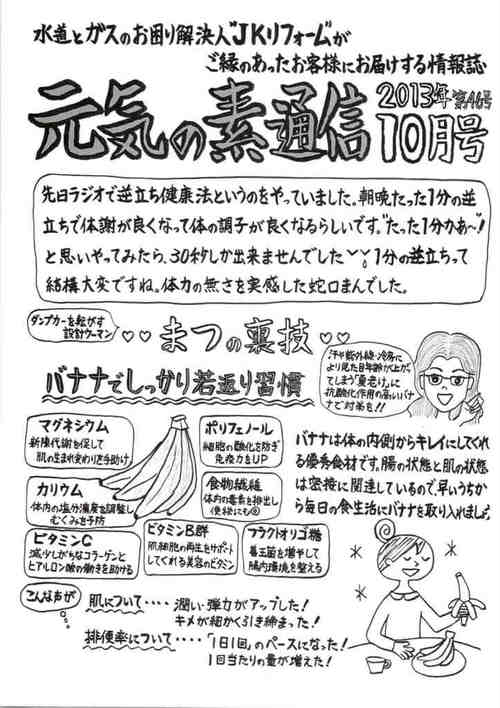 水道とガスのお困り解決人"JKリフォーム"が
ご縁のあったお客様にお届けする情報誌
元気の素通信
2013年 第46号
10月号
先日ラジオで逆立ち健康法というのをやっていました。朝晩たった1分の逆
立ちで体謝が良くなって体の調子が良くなるらしいです。"たった1分かぁ〜!
と思いやってみたら、30秒しか出来ませんでした 1分の逆立ちって
結構大変ですね。体力の無さを実感した蛇口まんでした。
ダンプカーを転がす
設計ウーマン
♡♡ まつの裏技 ♡♡
バナナでしっかり若返り習慣
汗や紫外線・冷房に
より見た目年齢が上がっ
てしまう「夏老け」に
抗酸化作用の高いバナ
ナで対策を!!
マグネシウム
新陳代謝を促して
肌の生まれ変わりを手助け
ポリフェノール
細胞の酸化を防ぎ
免疫力をUP
カリウム
体内の塩分濃度を調整し
むくみを予防
食物繊維
体内の毒素を排出し
便秘にも◎
ビタミンC
減少しがちなコラーゲンと
ヒアルロン酸の働きを助ける
ビタミンB群
肌細胞の再生をサポート
してくれる美容のビタミン
フラクトオリゴ糖
善玉菌を増やして
腸内環境を整える
バナナは体の内側からキレイにしてくれ
る優秀食材です。腸の状態と肌の状態
は密接に関連しているので、早いうちか
ら毎日の食生活にバナナを取り入れましょう。
こんな声が
肌について・・・・ 潤い・弾力がアップした!
キメが細かく引き締まった!
排便率について・・・・「1日1回」のペースになった!
1回当たりの量が増えた!